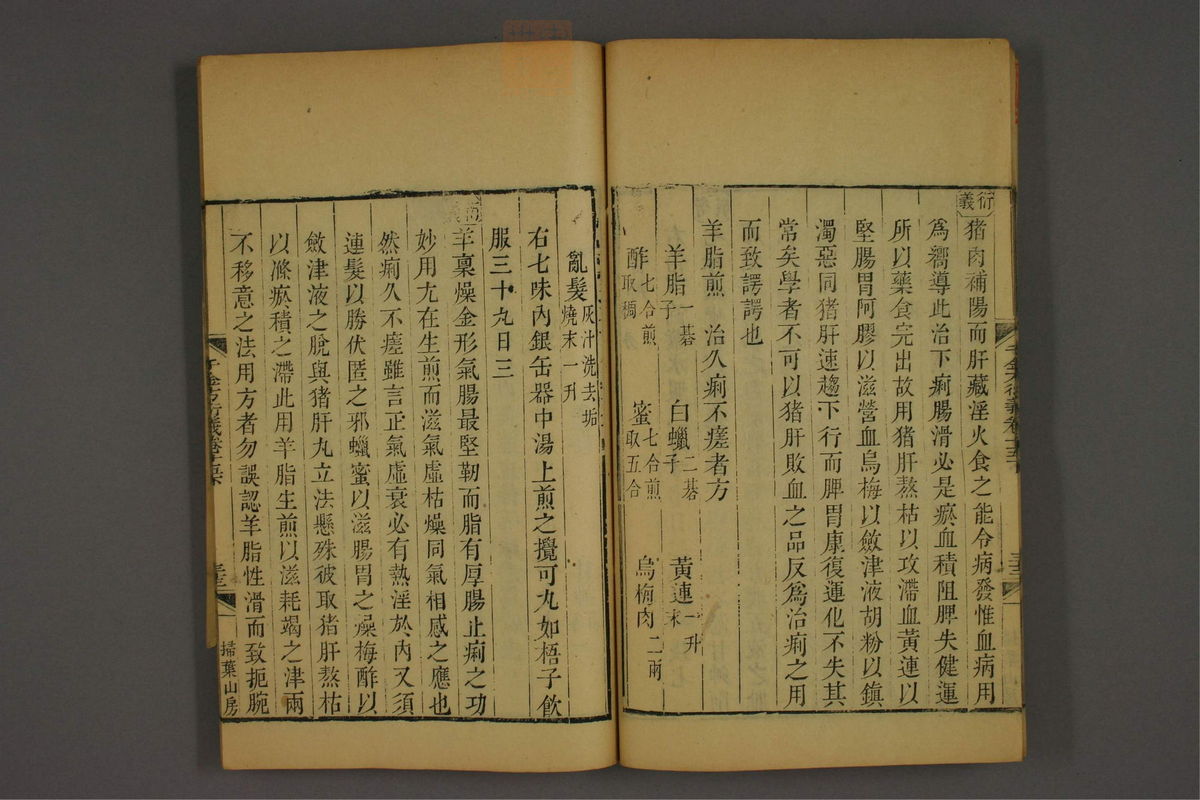 衍義
猪肉補陽而肝藏淫火食之能令病發惟血病用
爲嚮導此治下痢腸滑必是瘀血積阻脾失健運
所以藥食完出故用猪肝熬枯以攻滯血黃連以
堅腸胃阿膠以滋營血烏梅以斂津液胡粉以鎭
濁惡同猪肝速趨下行而脾胃康復運化不失其
常矣學者不可以猪肝敗血之品反爲治痢之用
而致諤諤也
羊脂煎 治久痢不瘥者方
羊脂一碁子 白蠟二碁子 黃連末一升
酢七合煎取稠 蜜七合煎取五合 烏梅肉二兩
亂髮灰汁洗去垢燒末一升
右七味內銀缶器中湯上煎之攪可丸如梧子飮
服三十九日三
羊稟燥金形氣腸最堅靭而脂有厚腸止痢之功
妙用尢在生煎而滋氣虛枯燥同氣相感之應也
然痢久不瘥雖言正氣虛衰必有熱淫於內又須
連髮以勝伏匿之邪蠟蜜以滋腸胃之燥梅酢以
斂津液之脫與猪肝丸立法懸殊彼取猪肝熬枯
以滌瘀積之滯此用羊脂生煎以滋耗竭之津兩
不移意之法用方者勿誤認羊脂性滑而致扼腕
掃葉山房